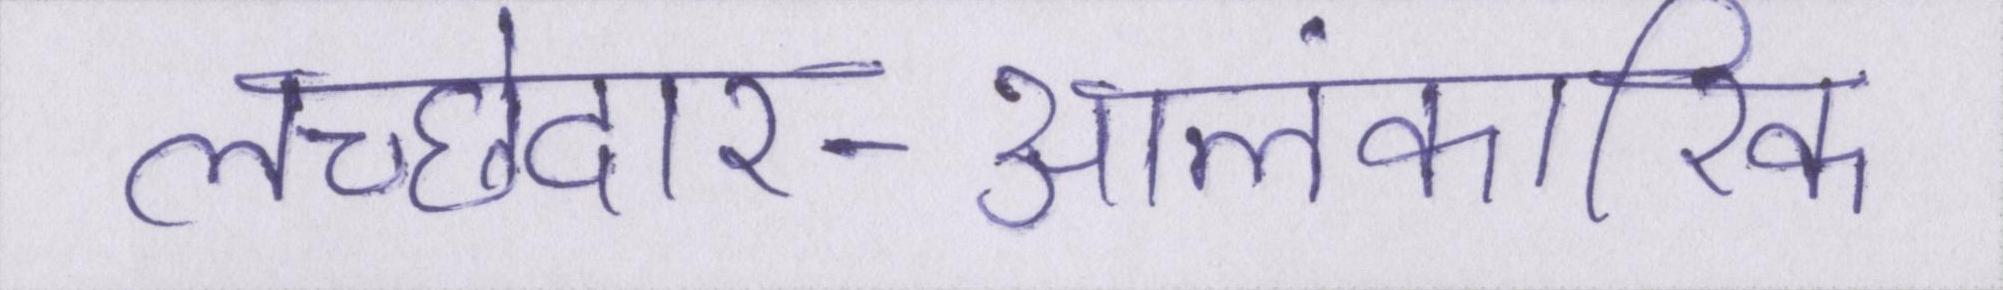 लच्छेदार-आलंकारिक